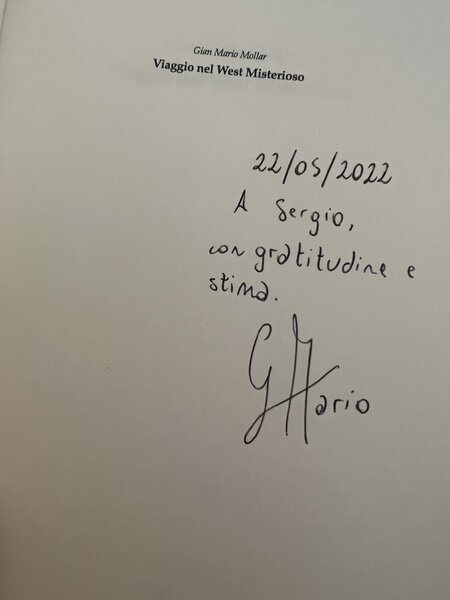 Gian Mario Mollar
Viaggio nel West Misterioso
22/05/2022
A Sergio,
con gratitudine e
stima.
G Mario